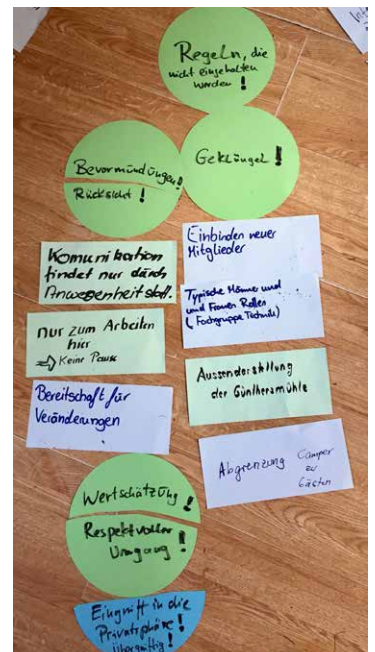 Regeln, die
nicht eingehalten
werden !
Geklüngel !
Bevormundungen!
Rücksicht !
Einbinden neuer
Mitglieder
Komunikation
findet nur durch
Anwesenheit statt.
Typische Männer und
und Frauen Rollen
(Fachgruppe Technik)
nur zum Arbeiten
hier
⇒ Keine Pause
Aussendarstellung
der Günthersmühle
Bereitschaft für
Veränderungen
Abgrenzung Camper
zu
Gästen
Wertschätzung !
Respektvoller
Umgang !
Eingriff in die
Privatsphäre !
übergriffig !